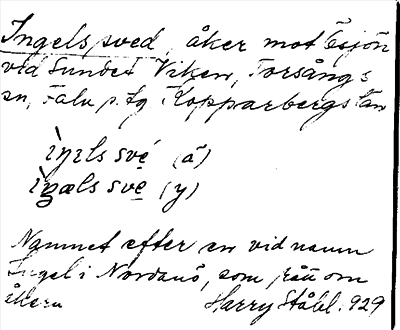 Ingelssved, åker mot Ösjön
vid Sundet Viken, Torsångs
sn, Falu s. tg Kopparbergs län
ìŋιls své (ä)
ìŋæls sve (y)
Namnet efter en vid namn
Ingel i Nordanö, som rådde om
åkern Harry Ståhl. 929